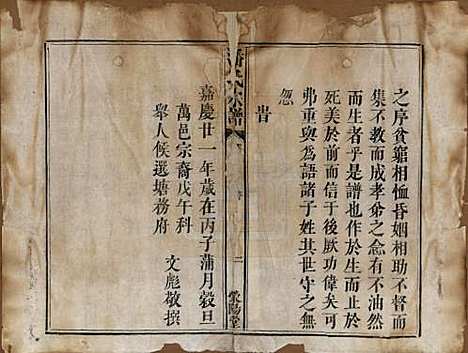 之序貧窮相恤昏姻相助不督而
集不教而成孝弟之念有不油然
而生者乎是譜也作於生而止於
死美於前而信于後厥功偉矣可
弗重與爲語諸子姓其世守之無
忽
旹
嘉慶廿一年歲在丙子蒲月穀旦
萬邑宗裔戊午科
舉人候選塘務府
文彪敬撰
序
二
滎陽堂